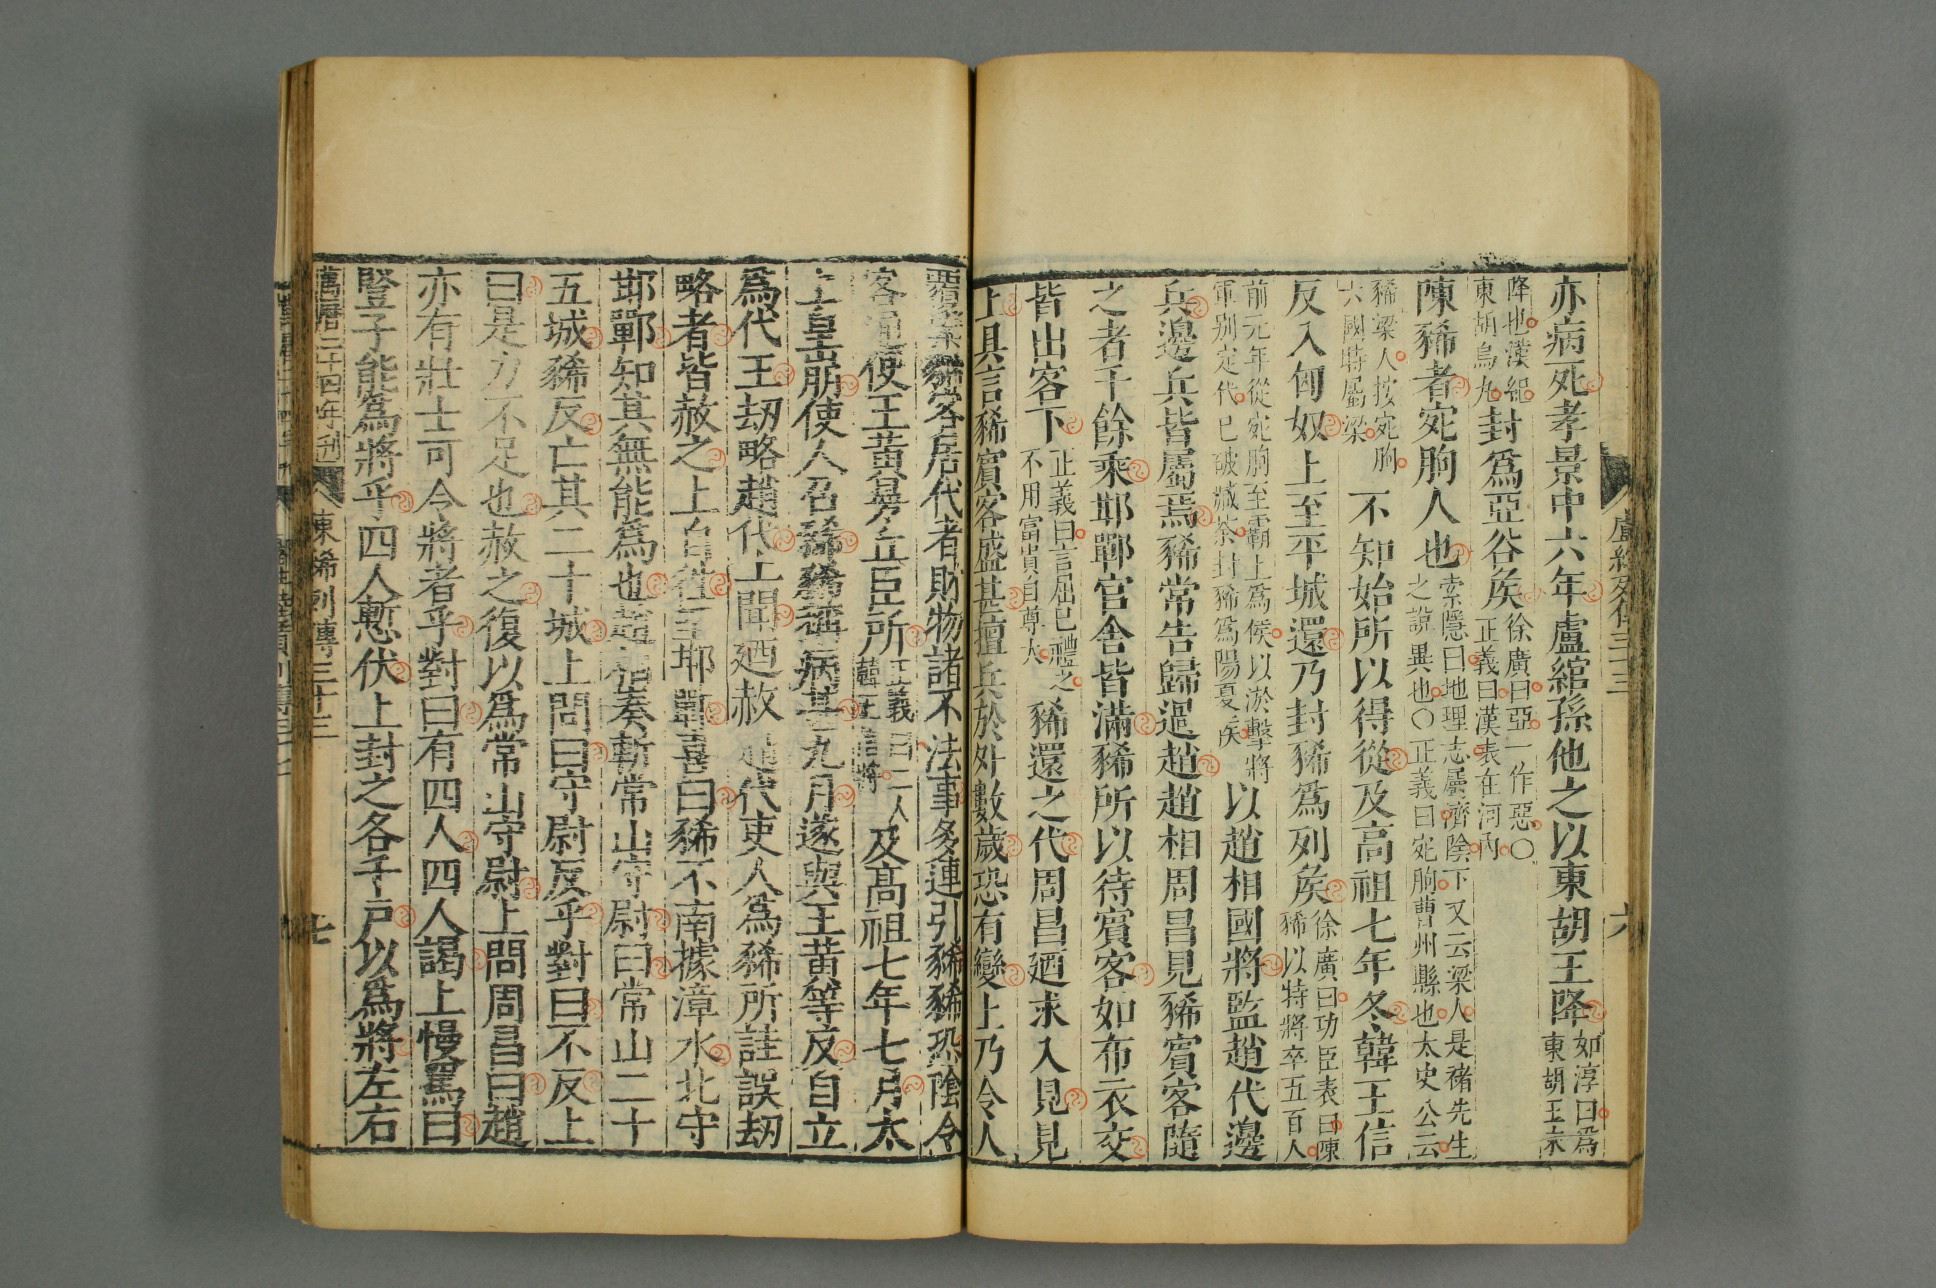 亦病死孝景中六年盧綰孫他之以東胡王降如淳曰爲東胡王來
降也漢紀東胡烏丸封爲亞谷矦徐廣曰亞一作惡○正義曰漢表在河內
陳豨者宛朐人也索隱曰地理志屬濟陰下又云梁人是褚先生之說異也○正義曰宛朐曹州縣也太史公云
豨梁人按宛朐六國時屬梁不知始所以得從及高祖七年冬韓王信
反入匈奴上至平城還乃封豨爲列矦徐廣曰功臣表曰陳豨以特將卒五百人
前元年從宛朐至霸上爲侯以游擊將軍別定代已破臧荼封豨爲陽夏矦以趙相國將監趙代邊
兵邊兵皆屬焉豨常告歸過趙趙相周昌見豨賓客隨
之者千餘乘邯鄲官舍皆滿豨所以待賓客如布衣交
皆出客下正義曰言屈己禮之不用富貴自尊大豨還之代周昌廼求入見見
上具言豨賓客盛甚擅兵於外數歲恐有變上乃令人
覆案豨客居代者財物諸不法事多連引豨豨恐陰令
客通使王黃曼丘臣所正義曰二人韓王信將及高祖七年七月太
上皇崩使人召豨豨稱病甚九月遂與王黃等反自立
爲代王劫略趙代上聞廼赦趙代吏人爲豨所詿誤劫
略者皆赦之上自往至邯鄲喜曰豨不南據漳水北守
邯鄲知其無能爲也趙相奏斬常山守尉曰常山二十
五城豨反亡其二十城上問曰守尉反乎對曰不反上
曰是力不足也赦之復以爲常山守尉上問周昌曰趙
亦有壯士可令將者乎對曰有四人四人謁上慢罵曰
豎子能爲將乎四人慙伏上封之各千戶以爲將左右
萬曆二十四年刊
陳豨列傳三十三
七
盧綰列傳三十三
六